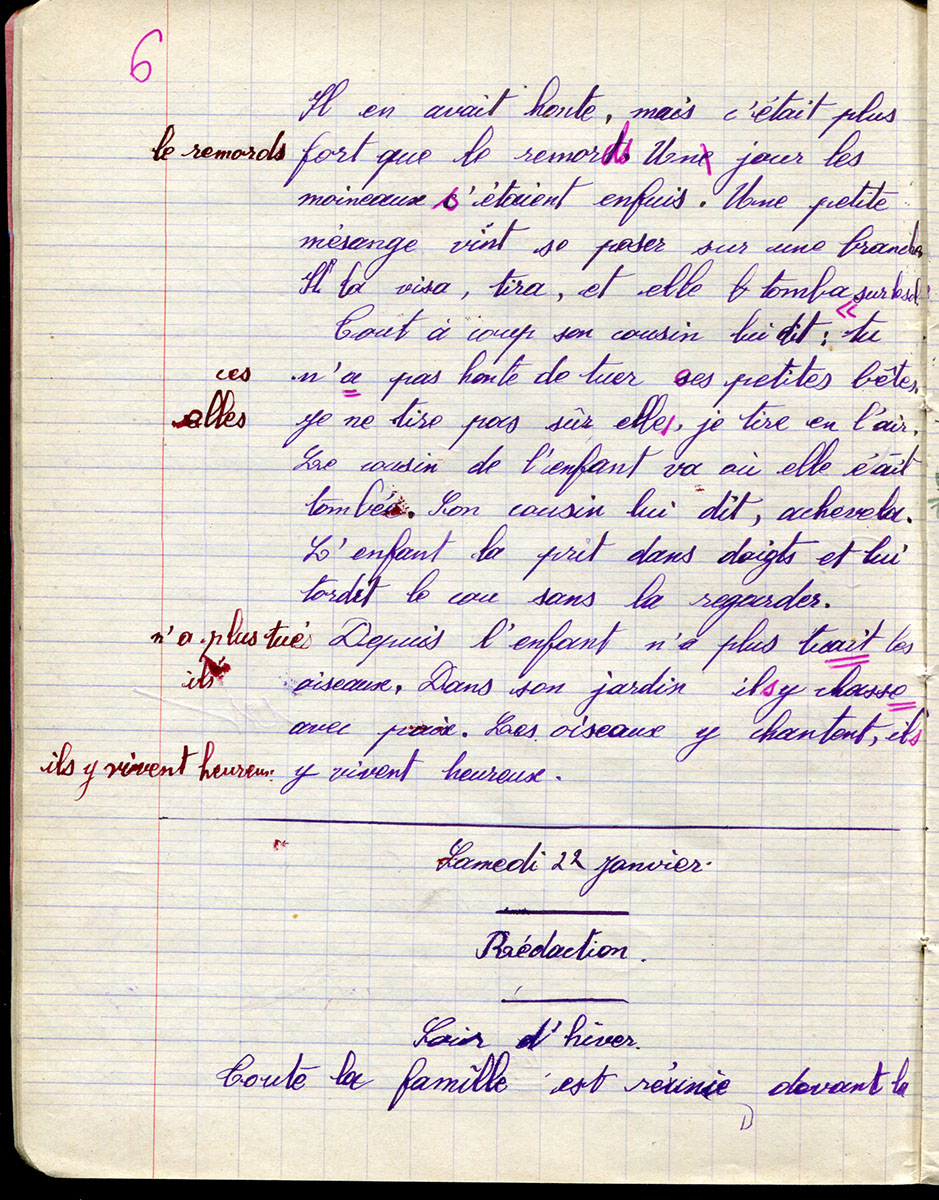 6
Il en avait honte, mais c'était plus
le remords fort que le remords. Une jour les
moineaux s'étaient enfuis. Une petite
mésange vint se poser sur une branche
Il la visa, tira, et elle tomba sur le sol
Tout à coup son cousin lui dit : « tu
ces n'a pas honte de tuer ses petites bêtes.
elles je ne tire pas sûr elles, je tire en l'air.
Le cousin de l'enfant va où elle était
tombée. Son cousin lui dit, achevela.
L'enfant la prit dans doigts et lui
tordit le cou sans la regarder.
n'a plus tué Depuis l'enfant n'a plus tuait les
ils oiseaux. Dans son jardin ils y chasse
avec paix. Les oiseaux y chantent, ils
ils y vivent heureux. y vivent heureux.
Samedi 22 Janvier.
Rédaction.
Soir d'hiver.
Toute la famille est réunie devant la